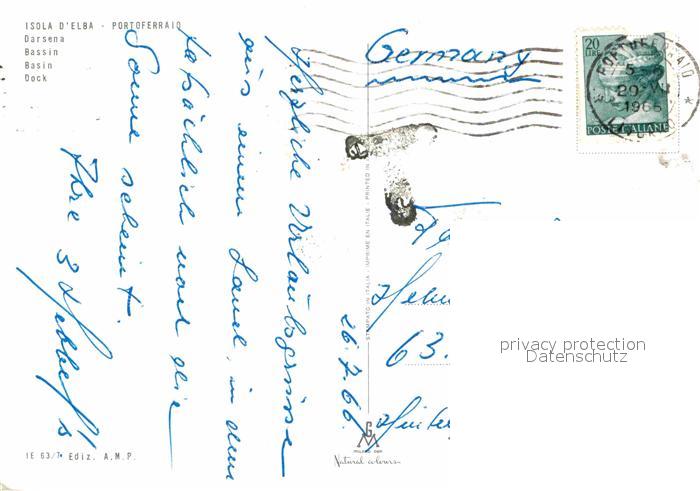 ISOLA D'ELBA - PORTOFERRAIO
Darsena
Bassin
Basin
Dock
Germany
20
LIRE
PORTOFERRAIO
29 VII
1966
POSTE ITALIANE
26.7.66.
Herzliche Urlaubsgrüsse
aus einem Land, in dem
tatsächlich noch die
Sonne scheint.
Ihre 3
STAMPATO IN ITALIA - IMPRIMÉ EN ITALIE - PRINTED IN
63.
privacy protection
Datenschutz
GM
MILANO
Natural colours
IE 63/7 Ediz. A.M.P.